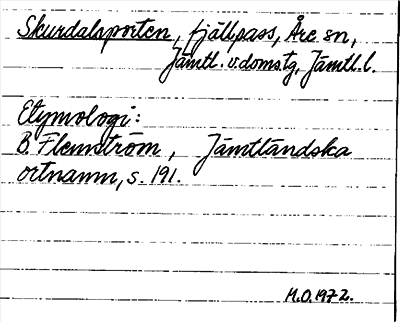 Skurdalsporten, fjällpass, Åre sn,
Jämtl. v. doms. tg, Jämtl. l.
Etymologi:
B. Flemström, Jämtländska
ortnamn, s. 191.
M.O. 1972.